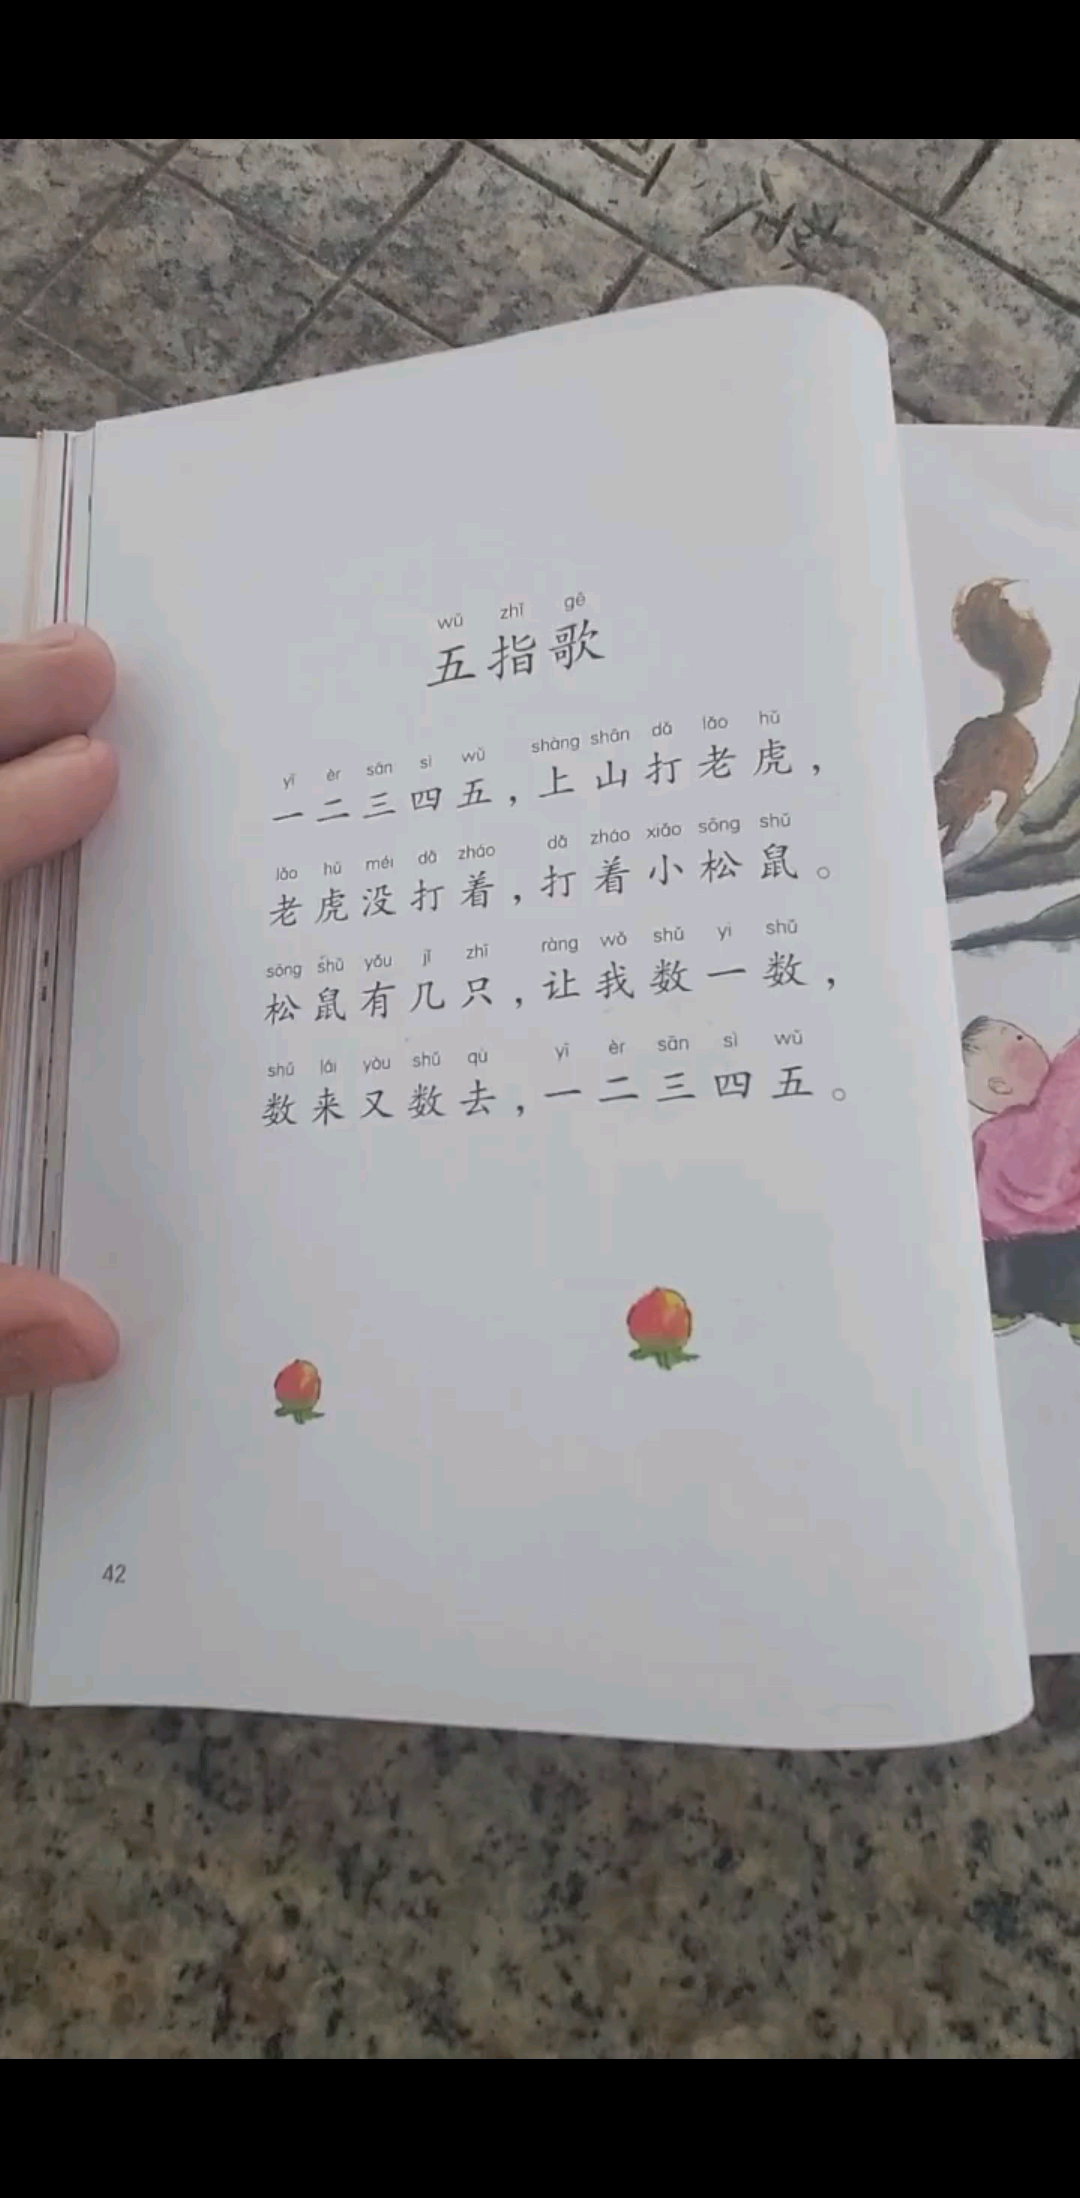 wǔ zhǐ gē
五指歌
yī èr sān sì wǔ shàng shān dǎ lǎo hǔ
一二三四五，上山打老虎，
lǎo hǔ méi dǎ zháo dǎ zháo xiǎo sōng shǔ
老虎没打着，打着小松鼠。
sōng shǔ yǒu jǐ zhī ràng wǒ shǔ yi shǔ
松鼠有几只，让我数一数，
shǔ lái yòu shǔ qù yī èr sān sì wǔ
数来又数去，一二三四五。
42